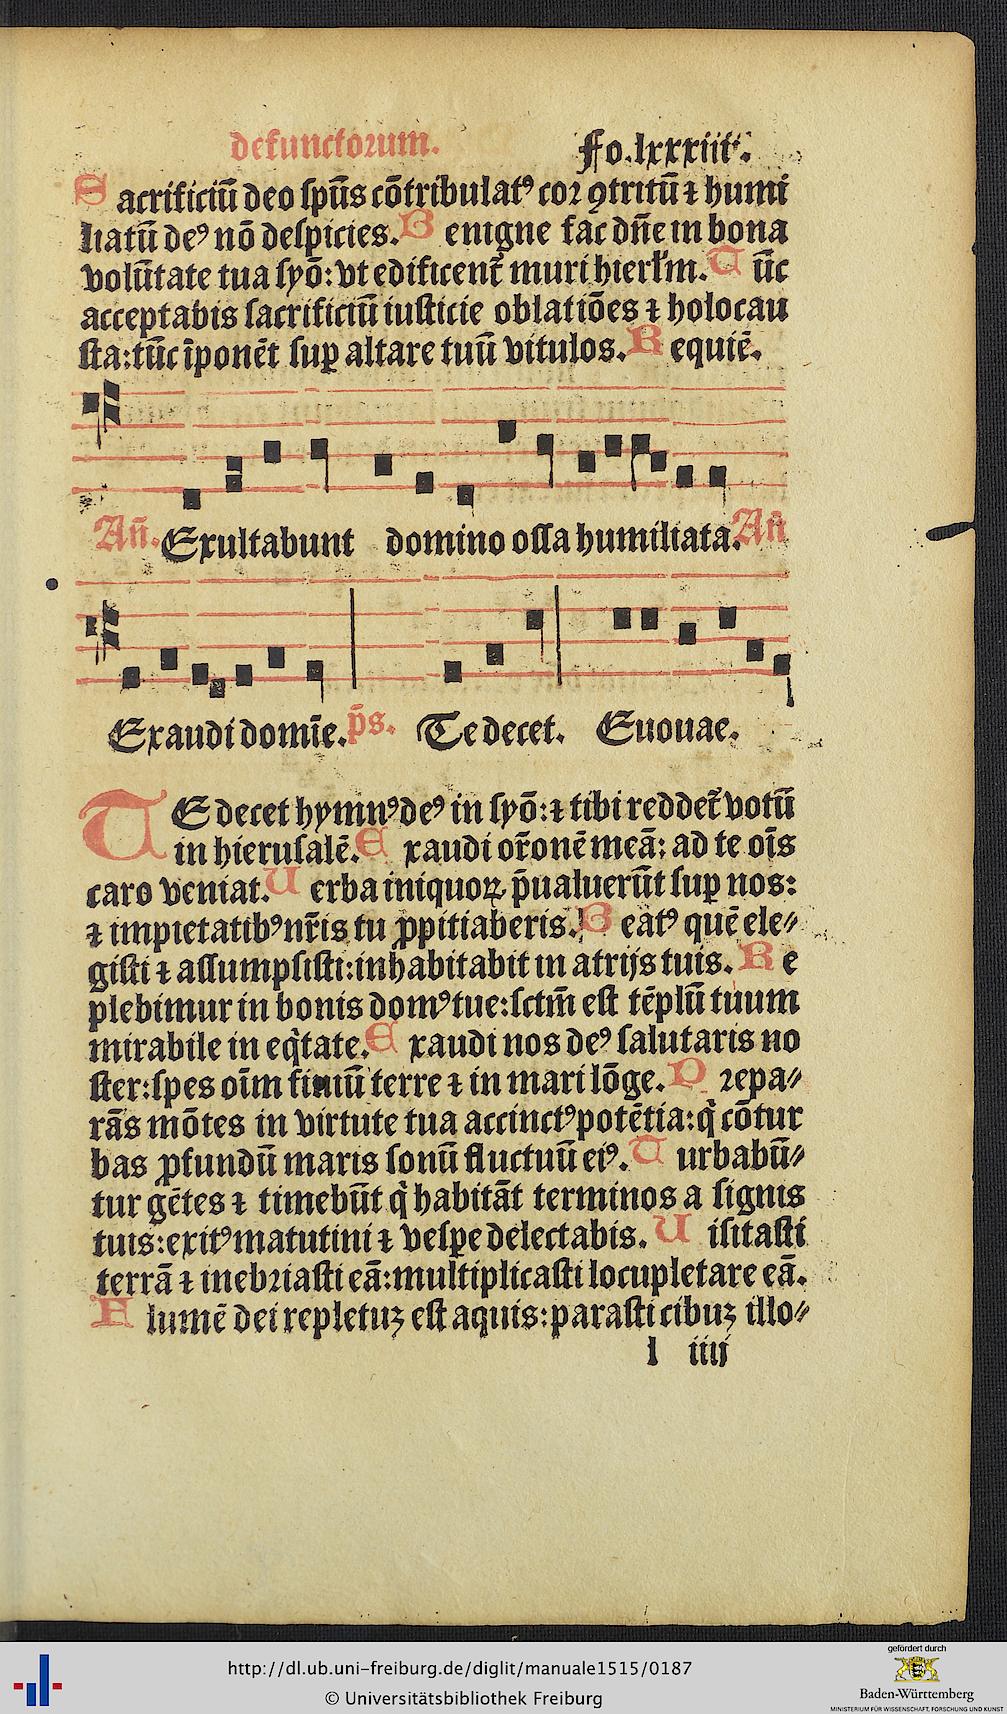 defunctorum. Fo.lxxxiiii.
Sacrificiū deo spūs cōtribulatꝰ cor ꝯtritū ⁊ humi
liatū deꝰ nō despicies. Benigne fac dn̄e in bona
volūtate tua syō: vt edificent̄ muri hierlm̄. Tūc
acceptabis sacrificiū iusticie oblatiōes ⁊ holocau
sta: tūc īponēt suꝑ altare tuū vitulos. Requiē.
An̄. Exultabunt domino ossa humiliata. An̄
Exaudi domīe. p̄s. Te decet. Euouae.
TE decet hymnꝰ deꝰ in syō: ⁊ tibi reddet̄ votū
in hierusalē. Exaudi or̄onē meā: ad te oīs
caro veniat. Uerba iniquoꝝ p̄ualuerūt suꝑ nos:
⁊ impietatibꝰ nr̄is tu ꝓpitiaberis. Beatꝰ quē ele⸗
gisti ⁊ assumpsisti: inhabitabit in atrijs tuis. Re
plebimur in bonis domꝰ tue: sctm̄ est tēplū tuum
mirabile in eq̄tate. Exaudi nos deꝰ salutaris no
ster: spes oīm finiū terre ⁊ in mari lōge. Prepa⸗
rās mōtes in virtute tua accinctꝰ potētia: q̄ cōtur
bas ꝓfundū maris sonū fluctuū eiꝰ. Turbabū⸗
tur gētes ⁊ timebūt q̄ habitāt terminos a signis
tuis: exitꝰ matutini ⁊ vesꝑe delectabis. Uisitasti
terrā ⁊ inebriasti eā: multiplicasti locupletare eā.
Flumē dei repletuꝫ est aquis: parasti cibuꝫ illo⸗
l iiij
http://dl.ub.uni-freiburg.de/diglit/manuale1515/0187
© Universitätsbibliothek Freiburg
gefördert durch
Baden-Württemberg
MINISTERIUM FÜR WISSENSCHAFT, FORSCHUNG UND KUNST